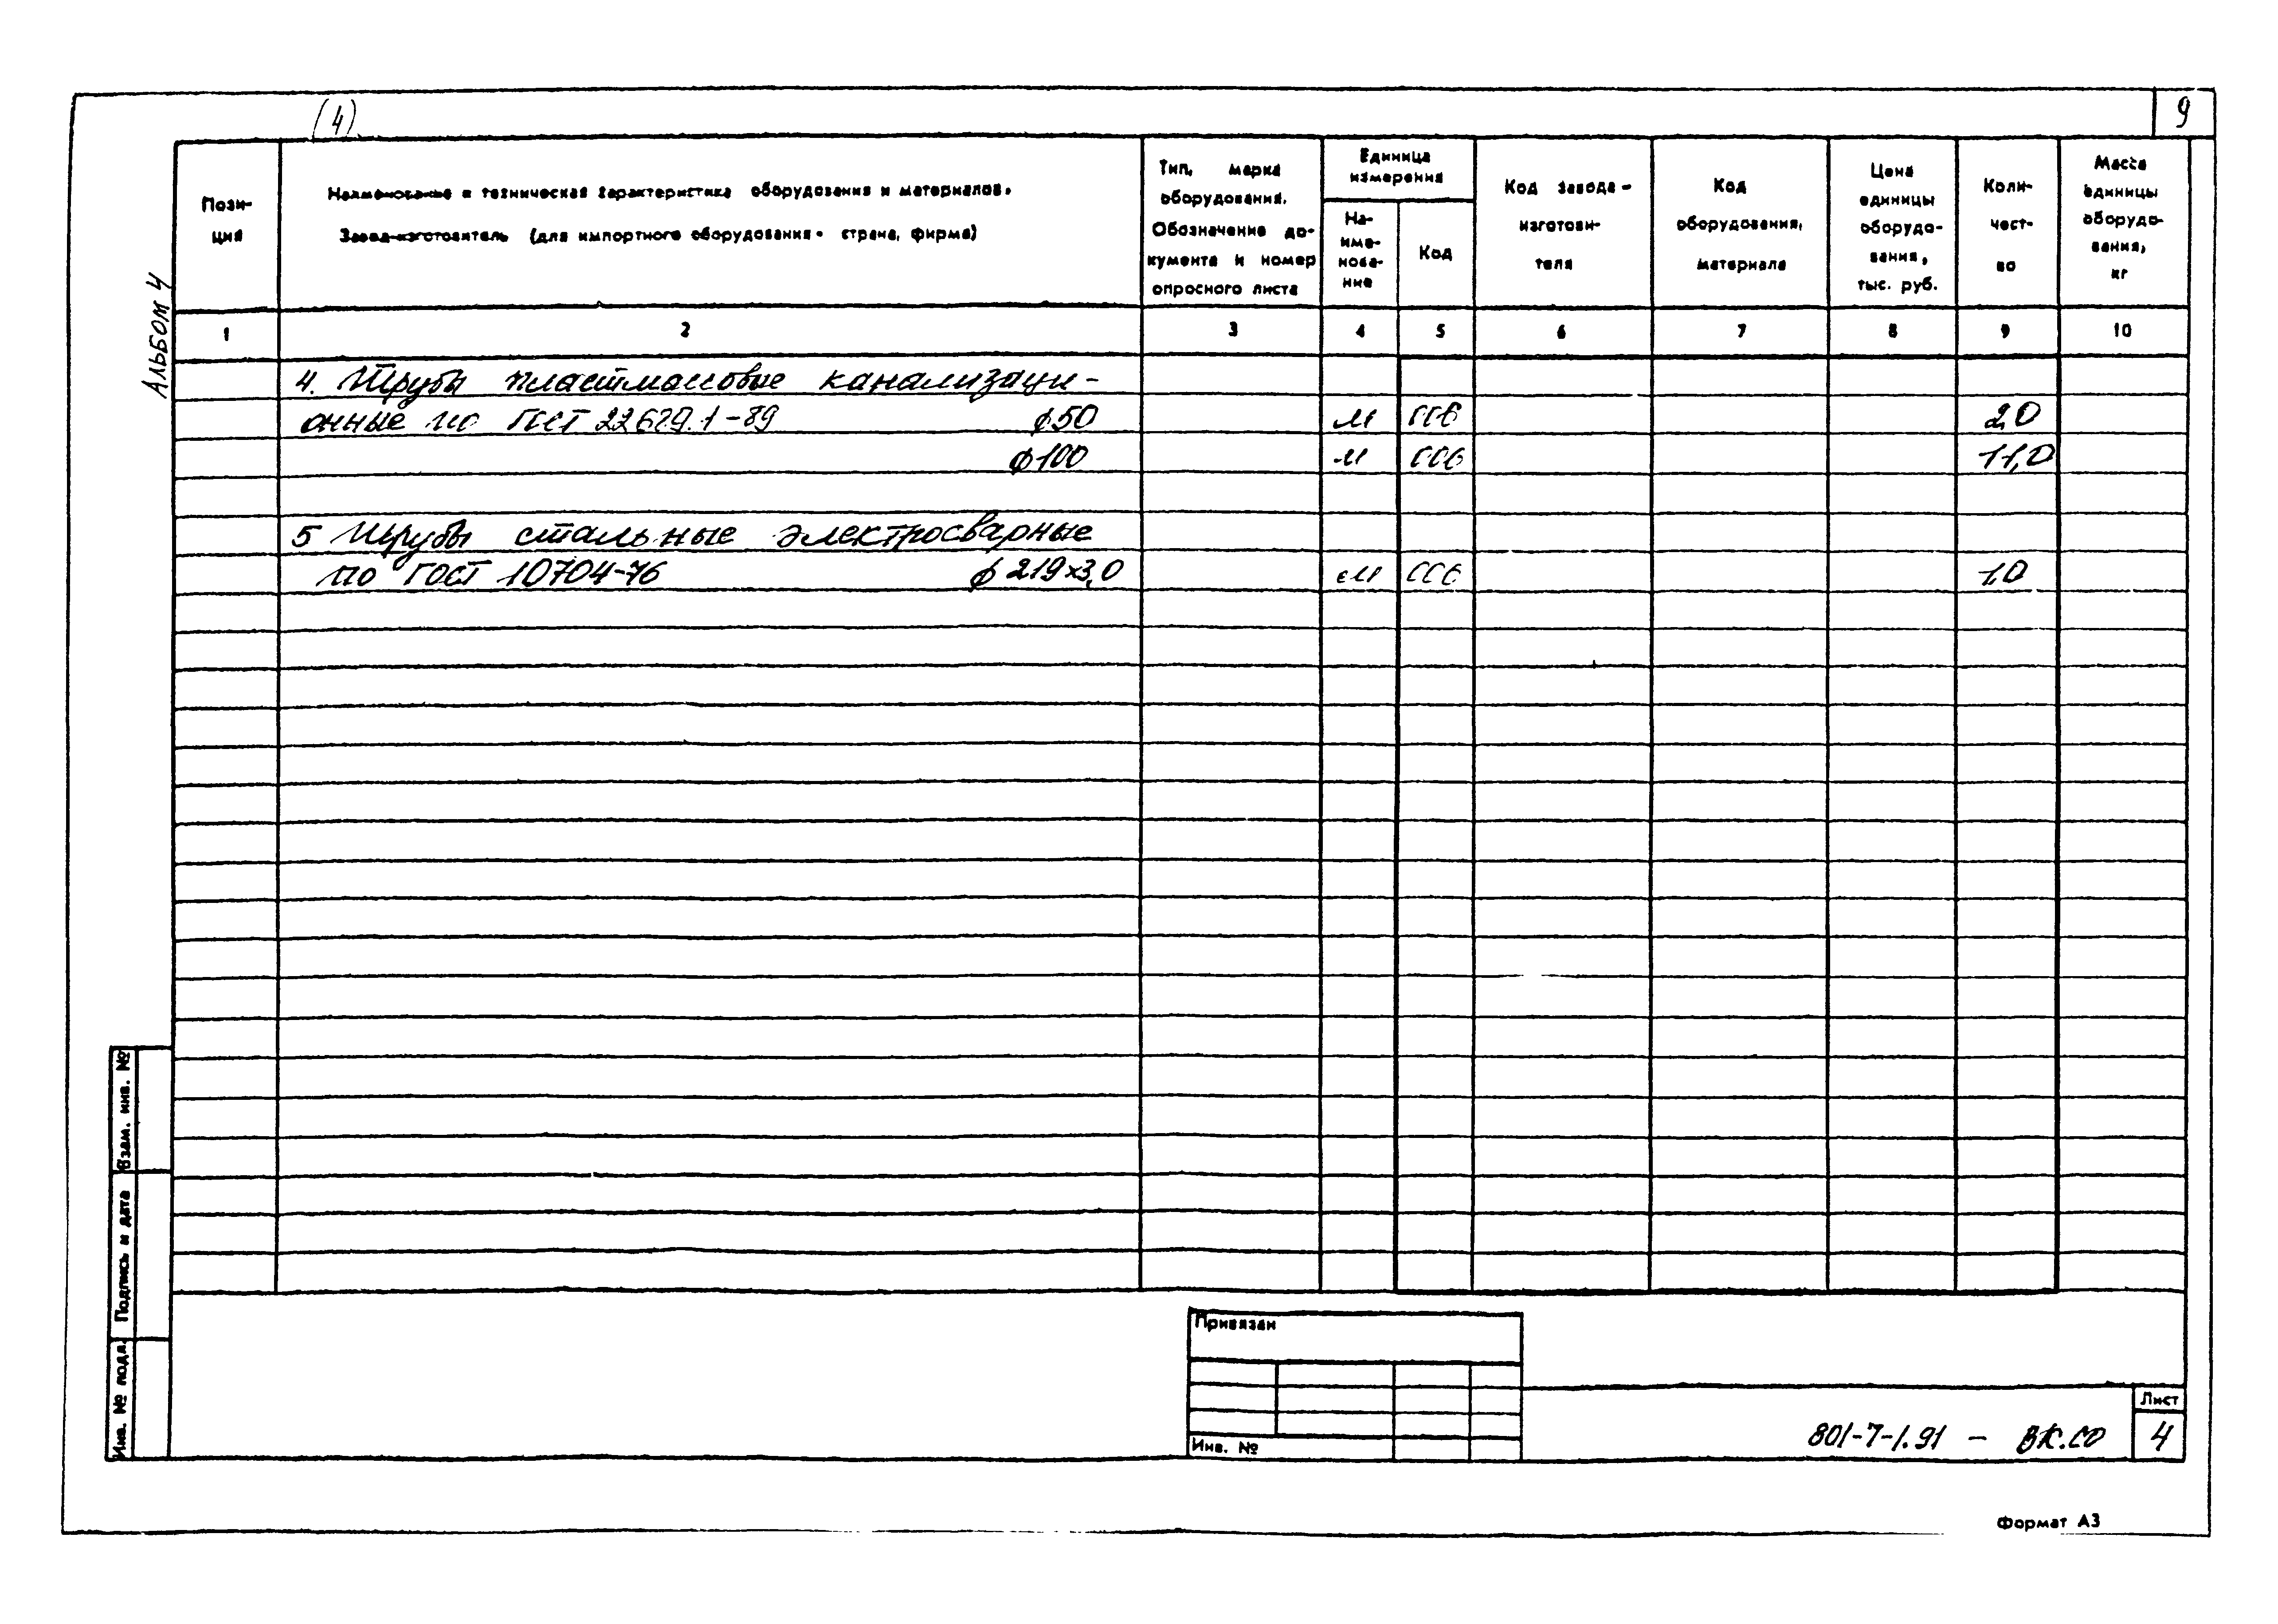 (4)
9
Альбом 4
Пози-
ция
Наименование и техническая характеристика оборудования и материалов.
Завод-изготовитель (для импортного оборудования - страна, фирма)
Тип, марка
оборудования.
Обозначение до-
кумента и номер
опросного листа
Единица
измерения
На-
име-
нова-
ние
Код
Код завода-
изготови-
теля
Код
оборудования,
материала
Цена
единицы
оборудо-
вания,
тыс. руб.
Коли-
чест-
во
Масса
единицы
оборудо-
вания,
кг
1 2 3 4 5 6 7 8 9 10
4. Трубы пластмассовые канализаци-
онные по ГОСТ 22689.1-89 ϕ50 м 006 2,0
ϕ100 м 006 11,0
5 Трубы стальные электросварные
по ГОСТ 10704-76 ϕ 219х3,0 м 006 1,0
Взам. инв. №
Подпись и дата
Инв. № подл.
Привязан
Инв. №
801-7-1.91 - ВК.СО
Лист
4
Формат А3